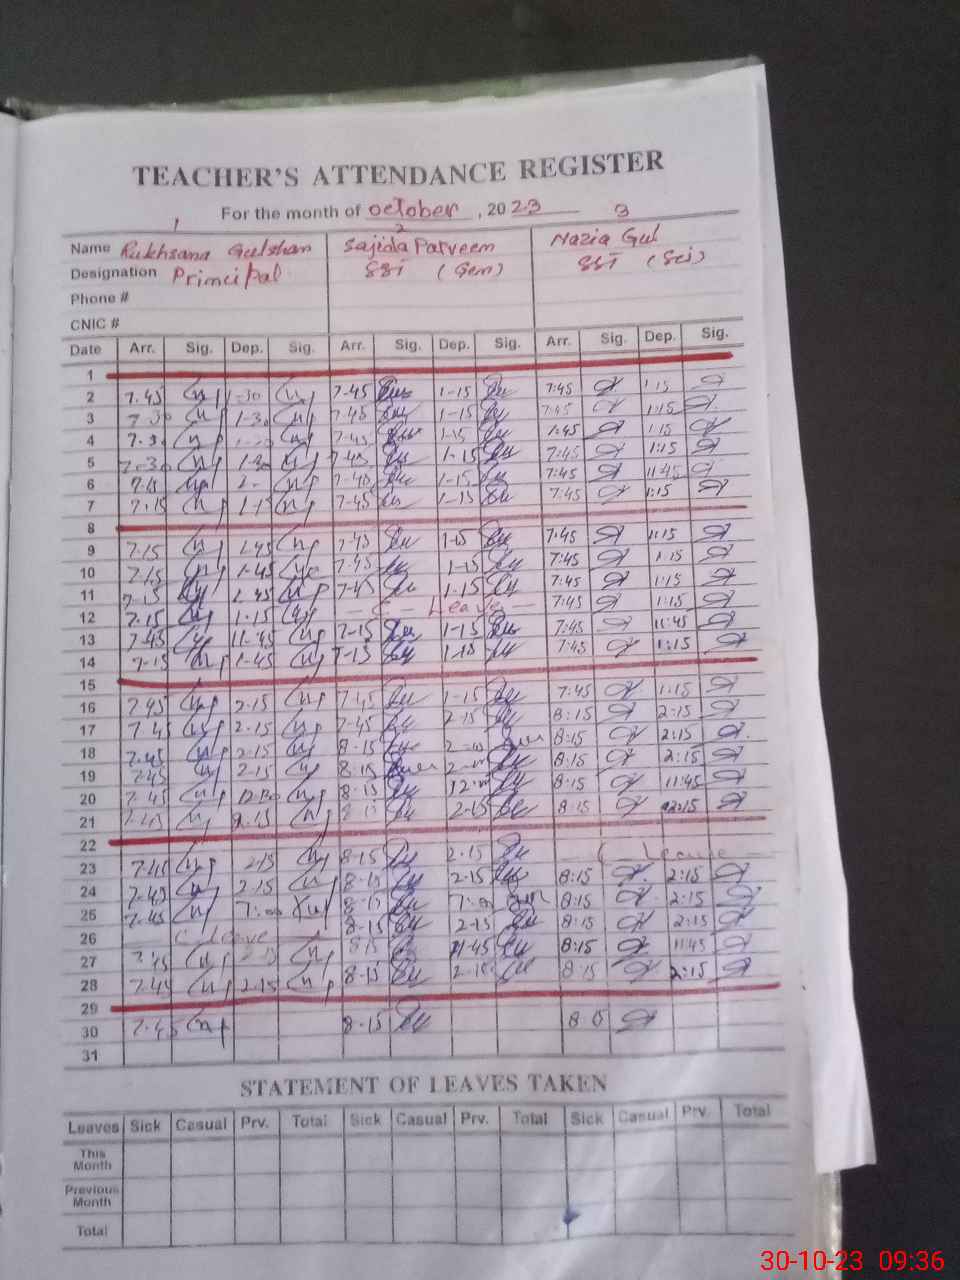 TEACHER'S ATTENDANCE REGISTER
For the month of october, 2023
1 2 3
Name Rukhsana Gulshan Sajida Parveem Nazia Gul
Designation Principal SST (Gen) SST (Sci)
Phone #
CNIC #
Date Arr. Sig. Dep. Sig. Arr. Sig. Dep. Sig. Arr. Sig. Dep. Sig.
1
2 7.45 1-30 7-45 1-15 7:45 1:15
3 7-30 1-30 7-45 1-15 7:45 1:15
4 7.30 7-45 1-15 1:45 1:15
5 7-30 1-30 7-45 1-15 7:45 1:15
6 1-15 7:45 11:45
7 7-15 1-15 7-45 1-15 7:45 1:15
8
9 7.15 1.45 7-45 1-15 7:45 1:15
10 7.15 1-45 7-45 1-15 7:45 1:15
11 7-15 1.45 7-45 1-15 7:45 1:15
12 7.15 1-15 - C - Leave - 7:45 1:15
13 7-45 11-45 7-15 1-15 7:45 11:45
14 7-15 1-45 7-15 1-15 7:45 1:15
15
16 7.45 2-15 7-45 1-15 7:45 1:15
17 7.45 2-15 7-45 2-15 8:15 2:15
18 7.45 2-15 8-15 2-00 8:15 2:15
19 7.45 2-15 8-15 8:15 2:15
20 7.45 8-15 8:15 11:45
21 2-15 8:15
22
23 7.45 2-15 8-15 2-15 - C - Leave -
24 7.45 2-15 8-15 2-15 8:15 2:15
25 7.45 7:00 8-15 7:00 8:15 2:15
26 C Leave 8-15 2-15 8:15 2:15
27 7.45 8-15 11-45 8:15 11:45
28 7.45 2-15 8-15 2-15 8:15 2:15
29
30 7.45 8-15
31
STATEMENT OF LEAVES TAKEN
Leaves Sick Casual Prv. Total Sick Casual Prv. Total Sick Casual Prv. Total
This Month
Previous Month
Total
30-10-23 09:36